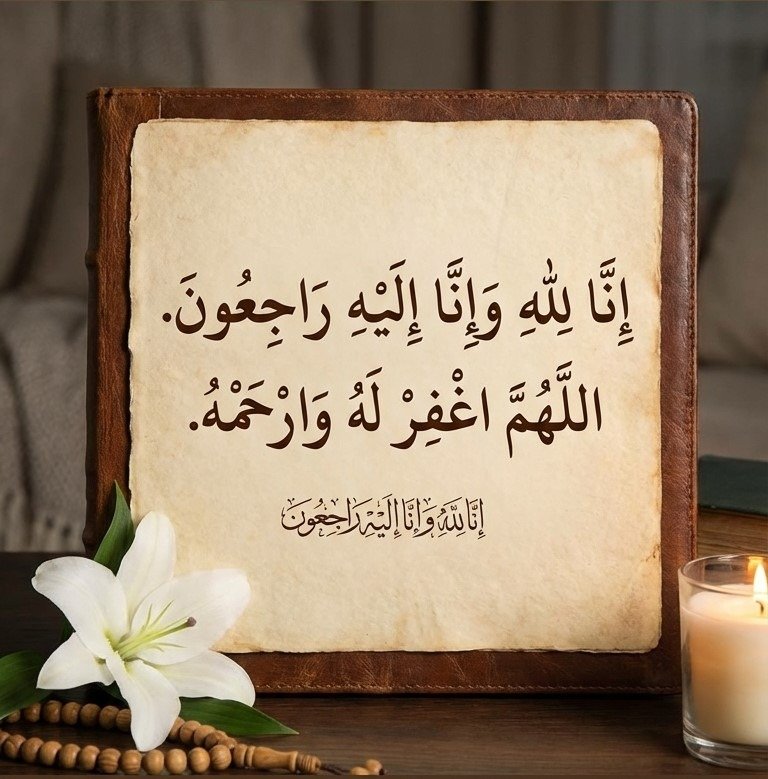 إِنَّا لِلّٰهِ وَإِنَّا إِلَيْهِ رَاجِعُونَ.
اللَّهُمَّ اغْفِرْ لَهُ وَارْحَمْهُ.
إِنَّا لِلَّهِ وَإِنَّا إِلَيْهِ رَاجِعُونَ